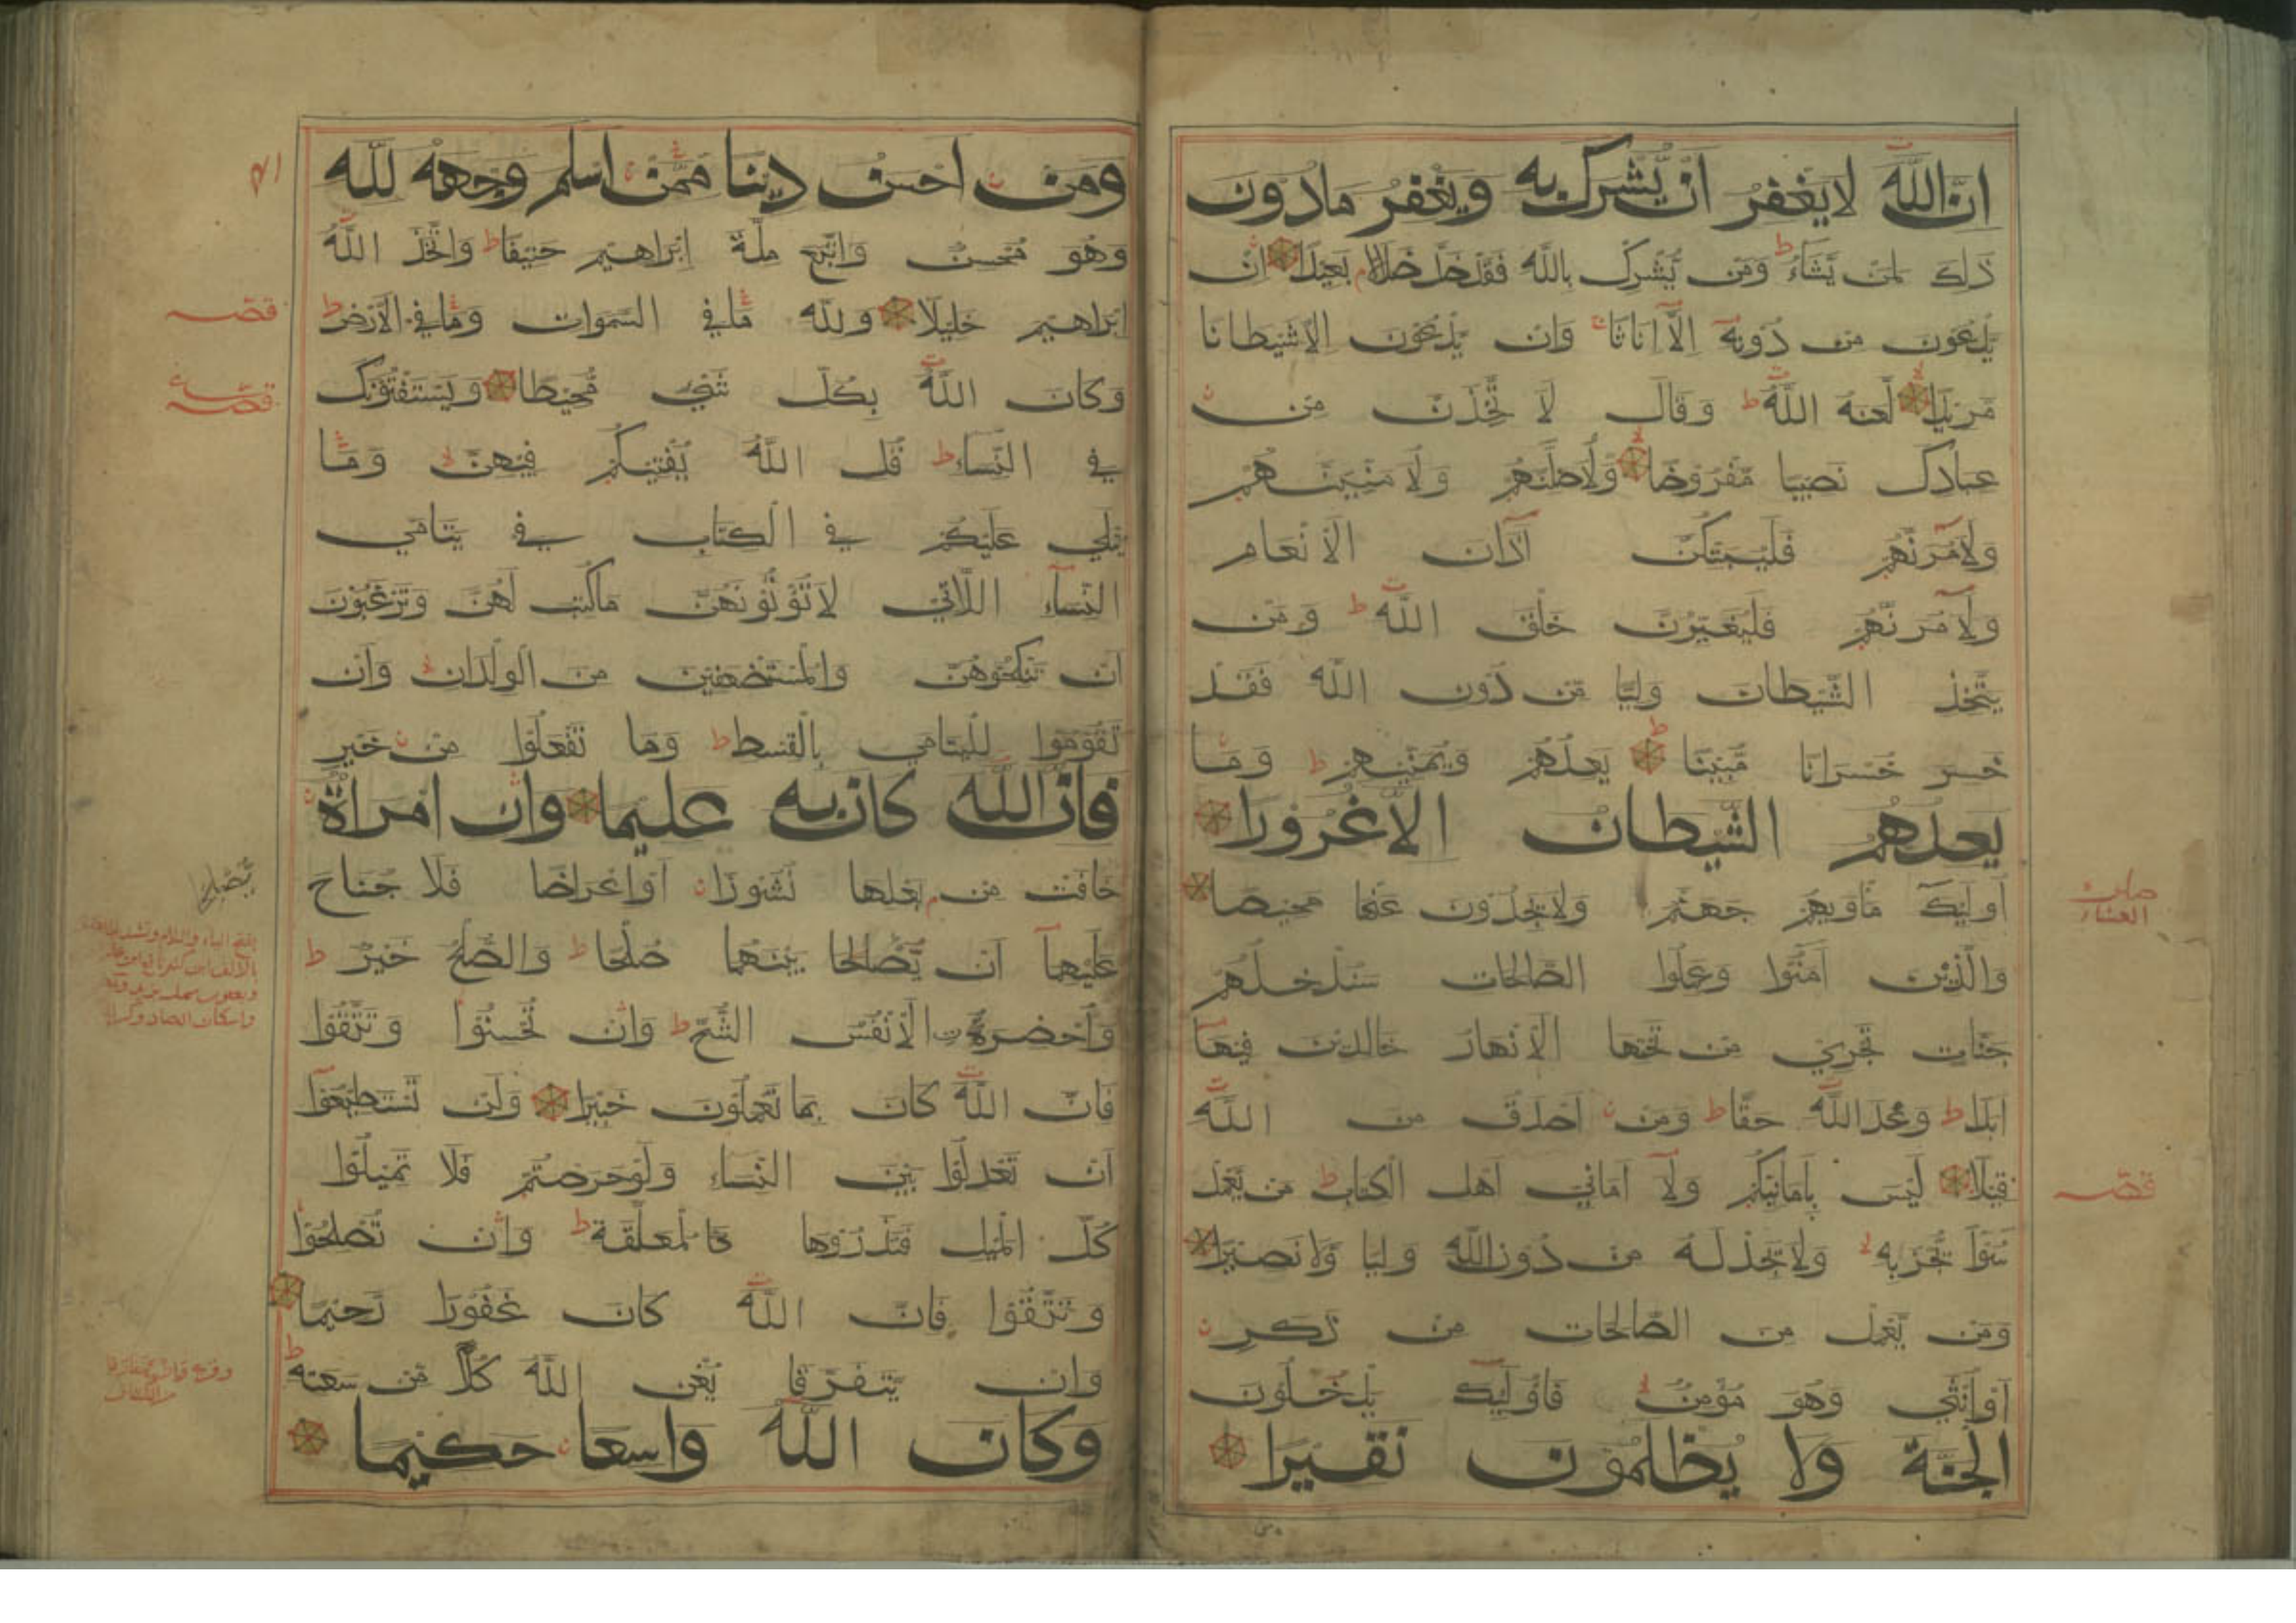 ان الله لا يغفر ان يشرك به ويغفر ما دون
ذلك لمن يشاء ط ومن يشرك بالله فقد ضل ضلالا بعيدا ان
يدعون من دونه الا اناثا وان يدعون الا شيطانا
مريدا لعنه الله ط وقال لا تخذن من
عبادك نصيبا مفروضا ولاضلنهم ولامنينهم
ولامرنهم فليبتكن آذان الانعام
ولامرنهم فليغيرن خلق الله ط ومن
يتخذ الشيطان وليا من دون الله فقد
خسر خسرانا مبينا يعدهم ويمنيهم ط وما
يعدهم الشيطان الا غرورا
اوليك ماويهم جهنم ولا يجدون عنها محيصا
والذين آمنوا وعملوا الصالحات سندخلهم
جنات تجري من تحتها الانهار خالدين فيها
ابدا ط وعد الله حقا ط ومن اصدق من الله
قيلا ليس بامانيكم ولا اماني اهل الكتاب ط من يعمل
سوا يجز به ولا يجد له من دون الله وليا ولا نصيرا
ومن يعمل من الصالحات من ذكر
او انثي وهو مومن فاوليك يدخلون
الجنة ولا يظلمون نقيرا
صلوة
العشاء
قصه
ومن احسن دينا ممن اسلم وجهه لله
وهو محسن واتبع ملة ابراهيم حنيفا ط واتخذ الله
ابراهيم خليلا ولله ما في السموات وما في الارض ط
وكان الله بكل شي محيطا ويستفتونك
في النساء ط قل الله يفتيكم فيهن وما
يتلي عليكم في الكتاب في يتامي
النساء اللاتي لا تؤتونهن ما كتب لهن وترغبون
ان تنكحوهن والمستضعفين من الولدان وان
تقوموا لليتامي بالقسط ط وما تفعلوا من خير
فان الله كان به عليما وان امراة
خافت من بعلها نشوزا او اعراضا فلا جناح
عليهما ان يصالحا بينهما صلحا ط والصلح خير ط
واحضرت الانفس الشح ط وان تحسنوا وتتقوا
فان الله كان بما تعملون خبيرا ولن تستطيعوا
ان تعدلوا بين النساء ولو حرصتم فلا تميلوا
كل الميل فتذروها كالمعلقة ط وان تصلحوا
وتتقوا فان الله كان غفورا رحيما
وان يتفرقا يغن الله كلا من سعته ط
وكان الله واسعا حكيما
قصه
قصه
يصلحا